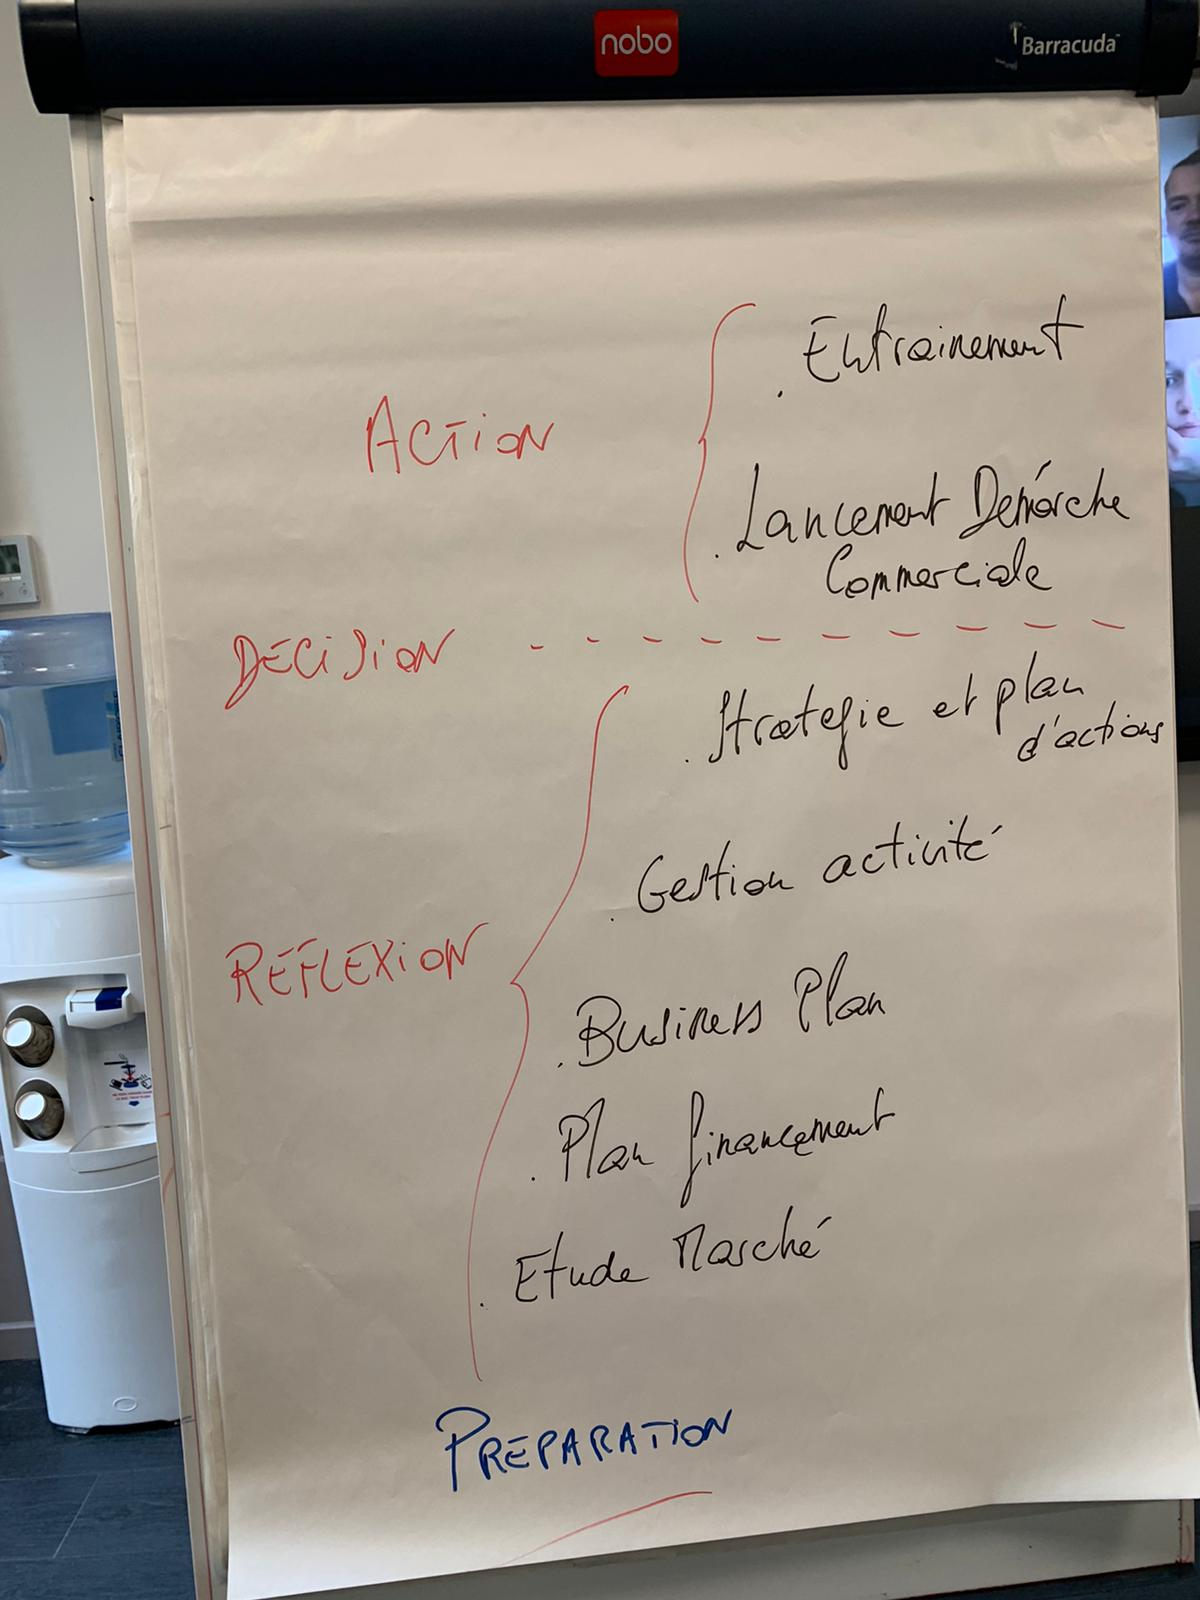 nobo
Barracuda
Entrainement
ACTION
Lancement Démarche
Commerciale
DÉCISION
Strategie et plan
d'actions
Gestion activité
RÉFLEXION
Business Plan
Plan financement
Etude Marché
PREPARATION